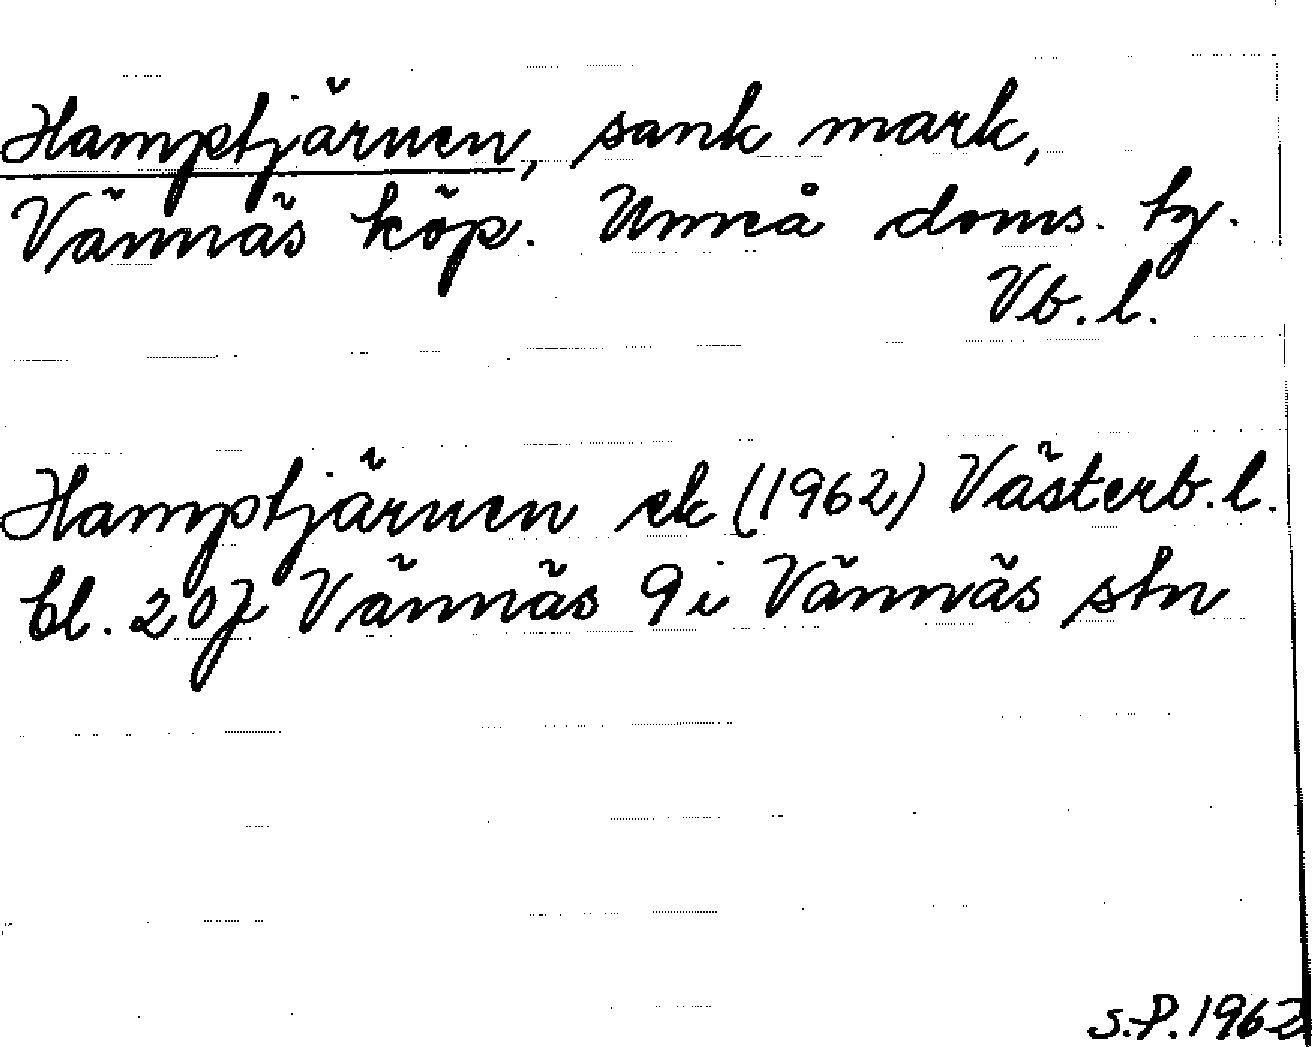 Hamptjärnen, sank mark,
Vännäs köp. Umeå doms. tg.
Vb. l.
Hamptjärnen ek (1962) Västerb. l.
bl. 20J Vännäs 9i Vännäs stn
S.P. 1962